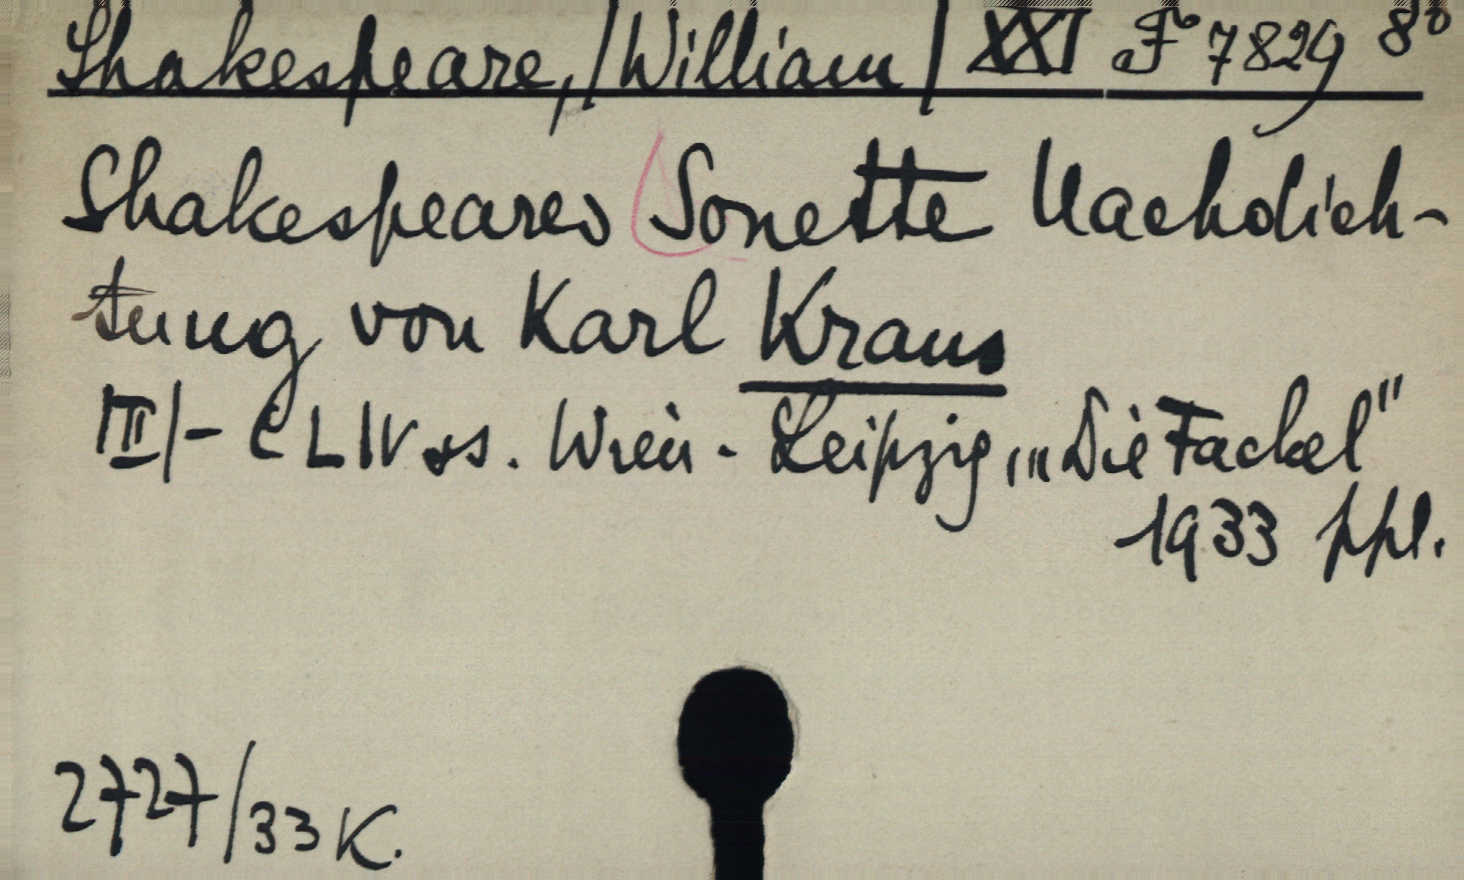 Shakespeare, /William/ XXI F 7829 8°
Shakespeares Sonette Nachdich-
tung von Karl Kraus
III/- CLIV ss. Wien - Leipzig, "Die Fackel"
1933 ppl.
2727/33 K.